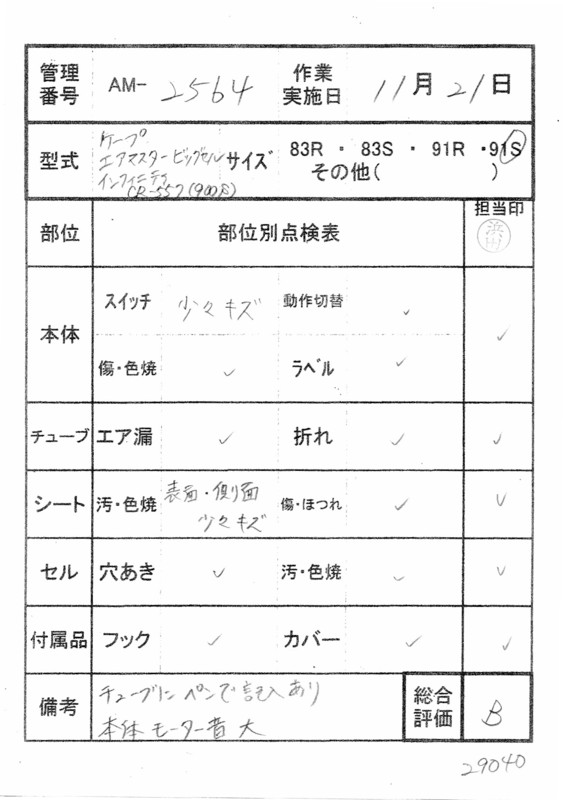 管理番号 AM- 2564 作業実施日 11月21日
型式 ケープ エアマスタービッグセル インフィニティ CR-557(900S) サイズ 83R ・ 83S ・ 91R ・ 91S
その他( )
部位 部位別点検表 担当印
浜田
本体 スイッチ 少々キズ 動作切替 ✓ ✓
傷・色焼 ✓ ラベル ✓
チューブ エア漏 ✓ 折れ ✓ ✓
シート 汚・色焼 表面・側面 少々キズ 傷・ほつれ ✓ ✓
セル 穴あき ✓ 汚・色焼 ✓ ✓
付属品 フック ✓ カバー ✓ ✓
備考 チューブにペンで記入あり
本体モーター音大
総合評価 B
29040